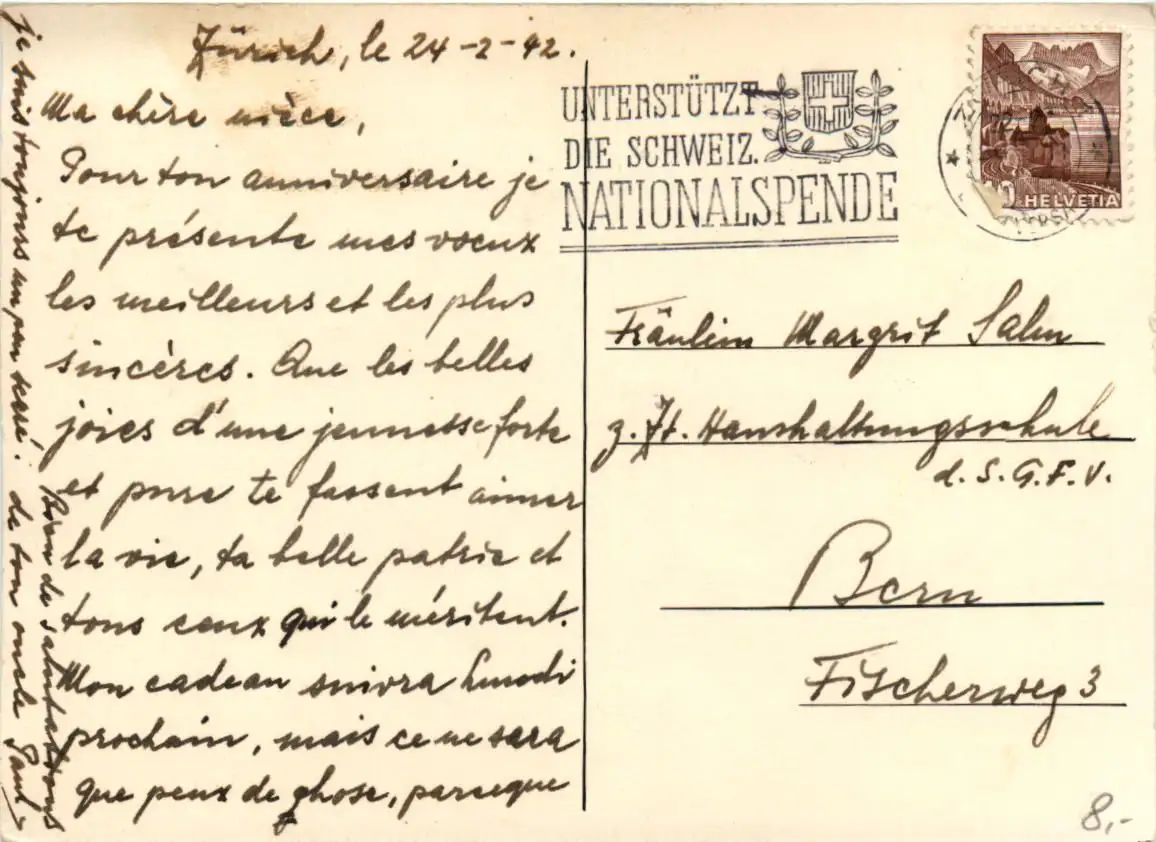 Zürich, le 24-2-42.
Ma chère nièce,
Pour ton anniversaire je
te présente mes voeux
les meilleurs et les plus
sincères. Que les belles
joies d'une jeunesse forte
et pure te fassent aimer
la vie, ta belle patrie et
tous ceux qui le méritent.
Mon cadeau suivra lundi
prochain, mais ce ne sera
que peux de chose, parceque
je suis toujours un peu serré.
Bien de salutations
de ton oncle Paul
UNTERSTÜTZT
DIE SCHWEIZ.
NATIONALSPENDE
10 HELVETIA
Fräulein Margrit Salm
z. Zt. Haushaltungsschule
d. S. G. F. V.
Bern
Fischerweg 3
8,-